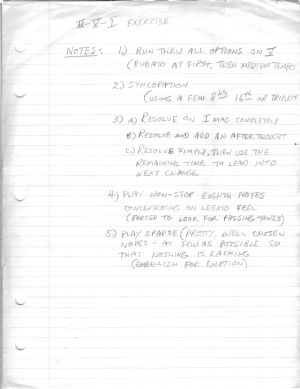 II-V-I EXERCISE
NOTES: 1.) RUN THRU ALL OPTIONS ON V
(RUBATO AT FIRST, THEN MEDIUM TEMPO
2.) SYNCOPATION
(USING A FEW 8ths 16th OR TRIPLETS
3) A) RESOLVE ON I MAJ. COMPLETELY
B) RESOLVE AND ADD AN AFTERTHOUGHT
C) RESOLVE SIMPLY, THEN USE THE
REMAINING TIME TO LEAD INTO
NEXT CHANGE.
4.) PLAY NON-STOP EIGHTH NOTES
CONCENTRATING ON LEGATO FEEL
(FORCED TO LOOK FOR PASSING TONES)
5.) PLAY SPARSE (PRETTY, WELL CHOSEN
NOTES - AS FEW AS POSSIBLE SO
THAT NOTHING IS LACKING
(EMBELLISH FOR EMOTION)